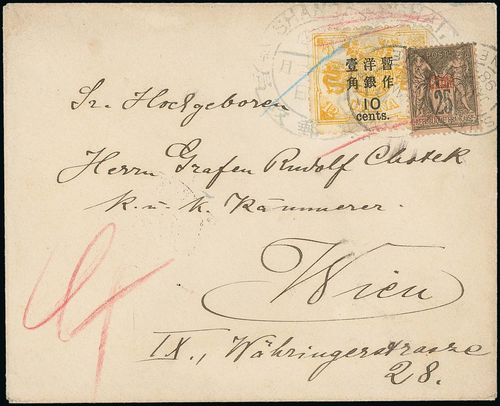 SHANGHAI
暫作洋銀壹角
10
cents.
25
Sr. Hochgeboren
Herrn Grafen Rudolf Chotek
k. u. k. Kämmerer.
Wien
IX., Währingerstrasze
28.